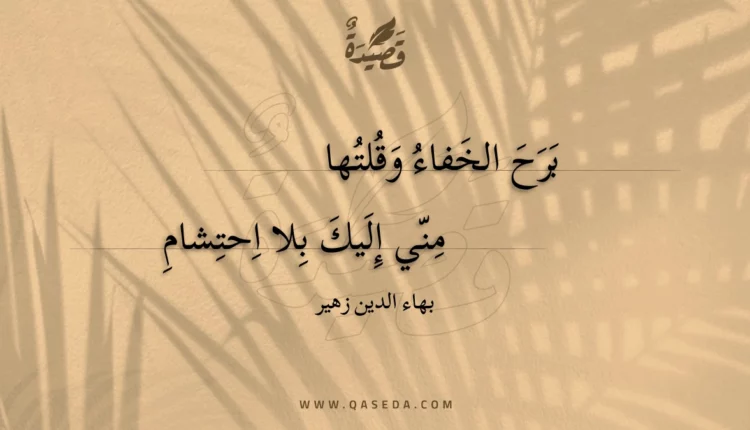 قَصِيْدَةٌ
بَرَحَ الخَفاءُ وَقُلتُها
مِنّي إِلَيكَ بِلا اِحتِشامِ
بهاء الدين زهير
WWW.QASEDA.COM